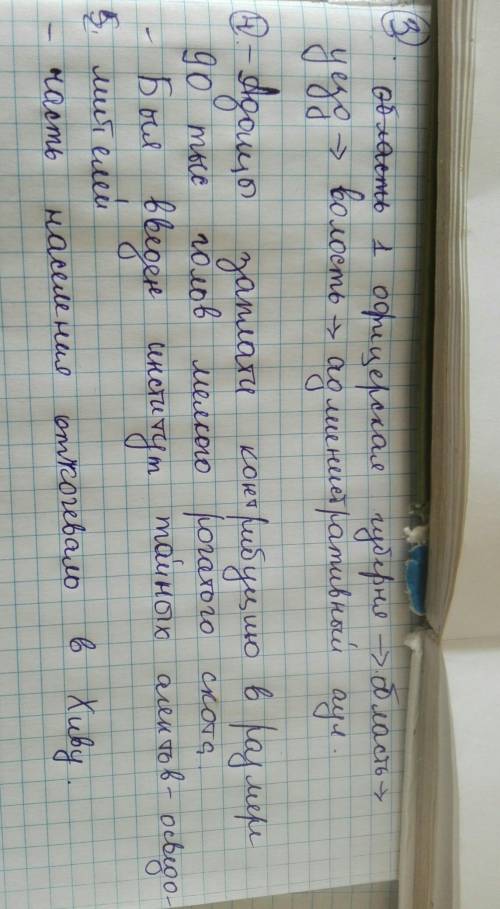 ③. область 1 офицерская губерня → область →
уезд → волость → административный аул.
④. – Адайцы заплати контрибуцию в размере
90 тыс голов мелкого рогатого скота.
– Был введен институт тайных агентов-осведо-
5. мителей
– часть населения откочевало в Хиву.